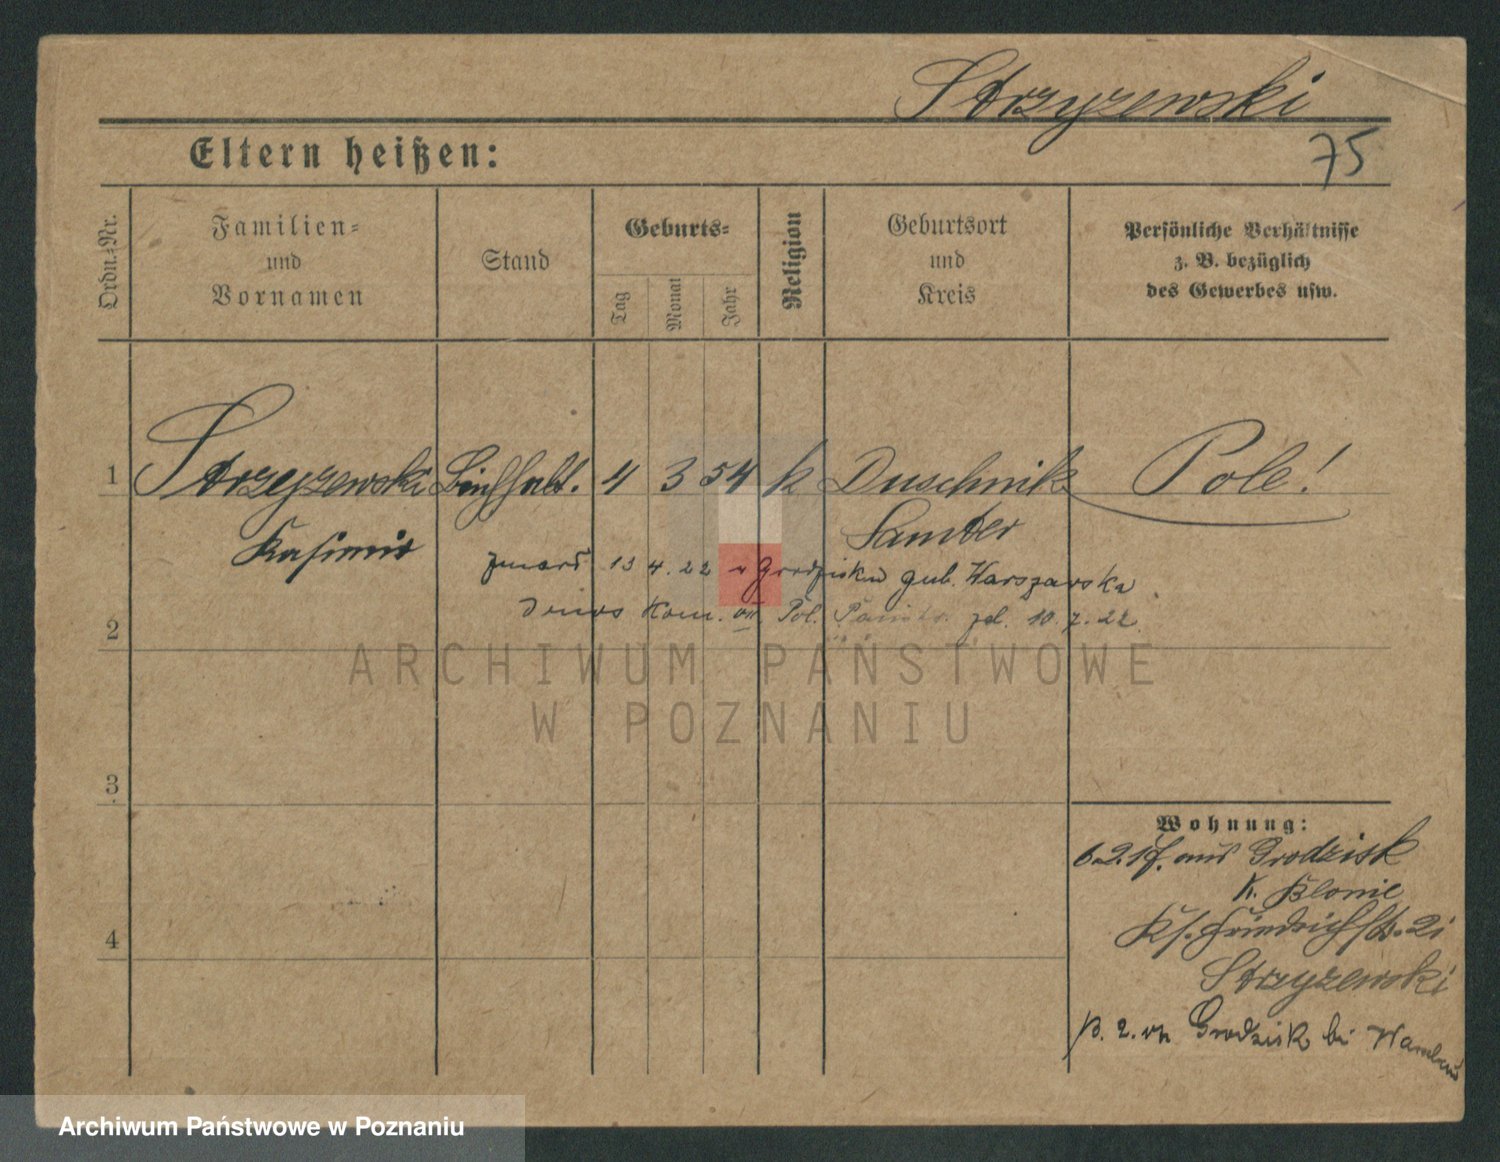 Strzyzewski
75
Eltern heißen:
Ordn.-Nr.
Familien-
und
Vornamen
Stand
Geburts-
Tag
Monat
Jahr
Religion
Geburtsort
und
Kreis
Persönliche Verhältnisse
z. B. bezüglich
des Gewerbes usw.
1 Strzyzewski Buchhalt. 4 3 54 k Duschnik Pole!
Kasimir Samter
zmarł 13 4. 22 w Grodzisku gub. Warszawska
Kom. VII Pol. Państw. zd. 10. 7. 22
2
3
4
Wohnung:
6.2.17. aus Grodzisk
K. Blonie
Ks. Friedrichstr. 21
Strzyzewski
3. 2. Grodzisk bei Warschau
ARCHIWUM PAŃSTWOWE
W POZNANIU
Archiwum Państwowe w Poznaniu